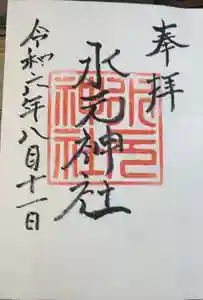 奉拝
神社
令和六年八月十一日